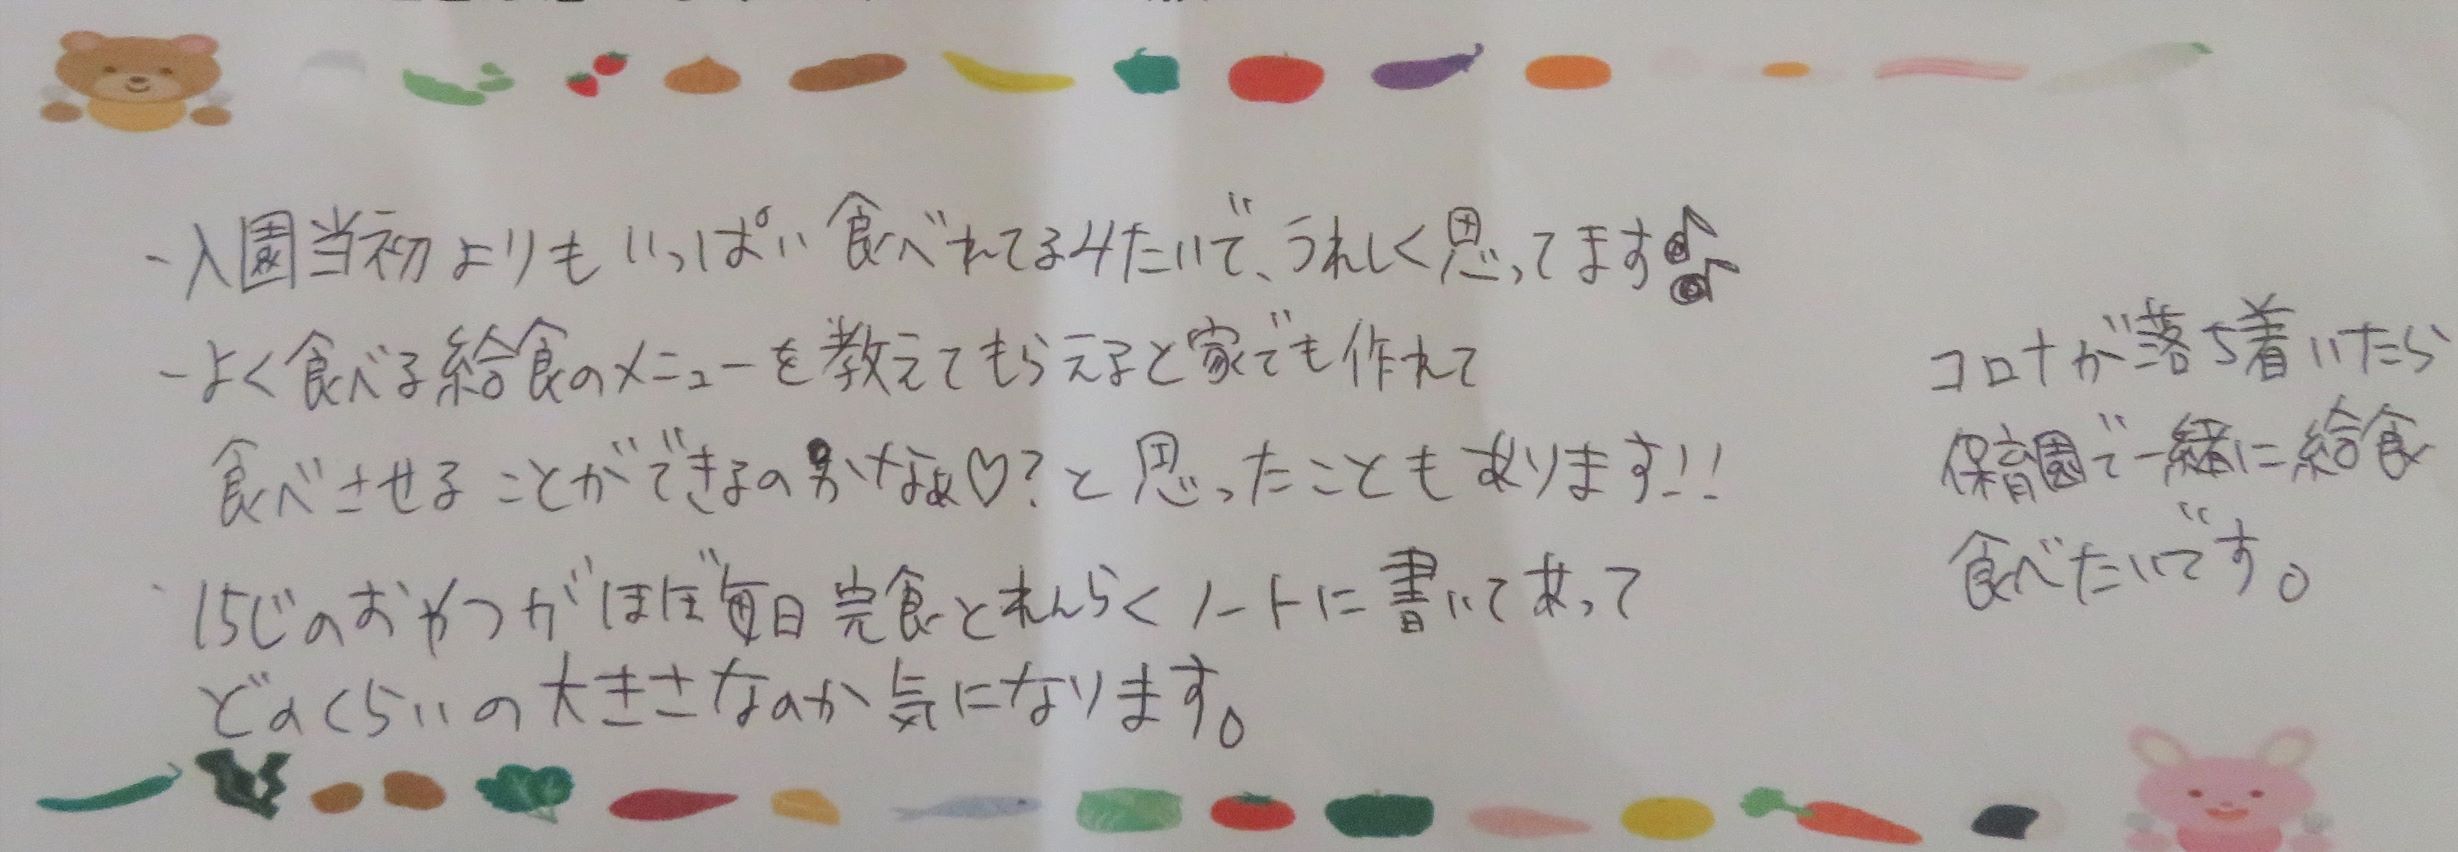 -入園当初よりもいっぱい食べれてるみたいで、うれしく思ってます♪♪
-よく食べる給食のメニューを教えてもらえると家でも作れて
食べさせることができるのかなぁ♡?と思ったこともあります!!
・15じのおやつがほぼ毎日完食とれんらくノートに書いてあって
どのくらいの大きさなのか気になります。
コロナが落ち着いたら
保育園で一緒に給食
食べたいです。